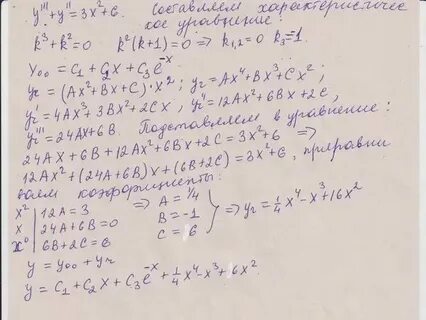 y''' + y'' = 3x² + 6. Составляем характеристиче
ское уравнение:
k³ + k² = 0 k²(k+1) = 0 ⇒ k₁,₂ = 0 k₃ = -1.
y₀₀ = C₁ + C₂x + C₃e⁻ˣ
yᵣ = (Ax² + Bx + C)·x²; yᵣ = Ax⁴ + Bx³ + Cx²;
yᵣ' = 4Ax³ + 3Bx² + 2Cx; yᵣ'' = 12Ax² + 6Bx + 2C,
yᵣ''' = 24Ax + 6B. Подставляем в уравнение:
24Ax + 6B + 12Ax² + 6Bx + 2C = 3x² + 6 ⇒
12Ax² + (24A + 6B)x + (6B + 2C) = 3x² + 6, приравни
ваем коэффициенты:
x² | 12A = 3 ⇒ A = 1/4
x | 24A + 6B = 0 B = -1 ⇒ yᵣ = 1/4 x⁴ - x³ + 16x²
x⁰ | 6B + 2C = 6 C = 6
y = y₀₀ + yᵣ
y = C₁ + C₂x + C₃e⁻ˣ + 1/4 x⁴ - x³ + 6x².